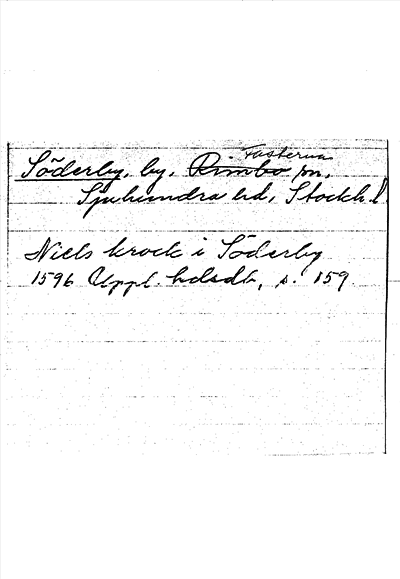 Fasterna
Söderby, by, Rimbo sn,
Sjuhundra hd, Stockh. l
Niels krock i Söderby
1596 Uppl. hdsdb, s. 159